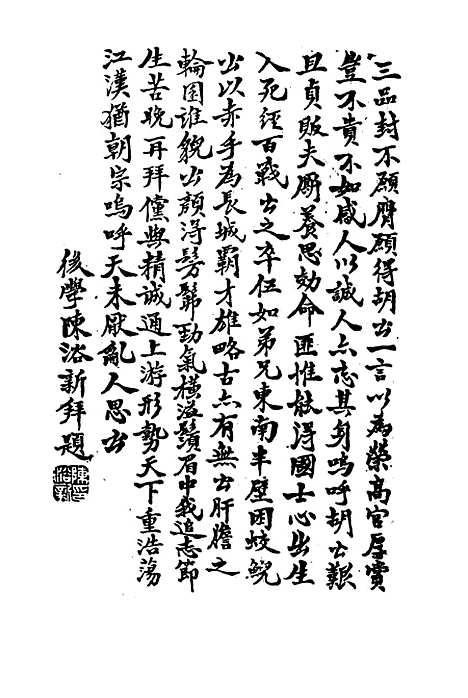 三品封不願膺願得胡公一言以為榮高官厚賞
豈不貴不如感人以誠人亦忘其身嗚呼胡公艱
且貞販夫廝養思効命匪惟能得國士心出生
入死經百戰公之卒伍如弟兄東南半壁困蛟鯢
公以赤手為長城霸才雄略古亦有無公肝膽之
輪囷誰貌公顏得髣髴勁氣橫溢鬚眉中我追志節
生苦晚再拜儻與精誠通上游形勢天下重浩蕩
江漢猶朝宗嗚呼天未厭亂人思公
後學陳浴新拜題
陳印浴新